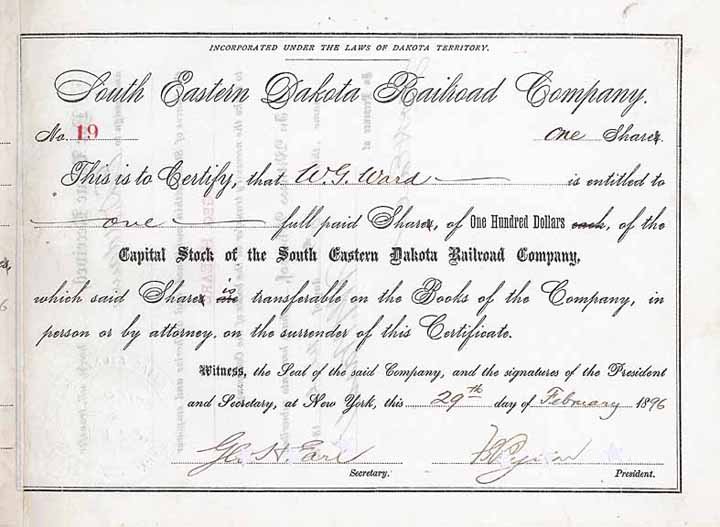 INCORPORATED UNDER THE LAWS OF DAKOTA TERRITORY.
South Eastern Dakota Railroad Company.
No. 19 one Shares.
This is to Certify, that W. G. Ward is entitled to
one full paid Shares, of One Hundred Dollars each, of the
Capital Stock of the South Eastern Dakota Railroad Company,
which said Shares are is transferable on the Books of the Company, in
person or by attorney, on the surrender of this Certificate.
Witness, the Seal of the said Company, and the signatures of the President
and Secretary, at New York, this 29th day of February 1896
Geo. H. Earl
Secretary. President.